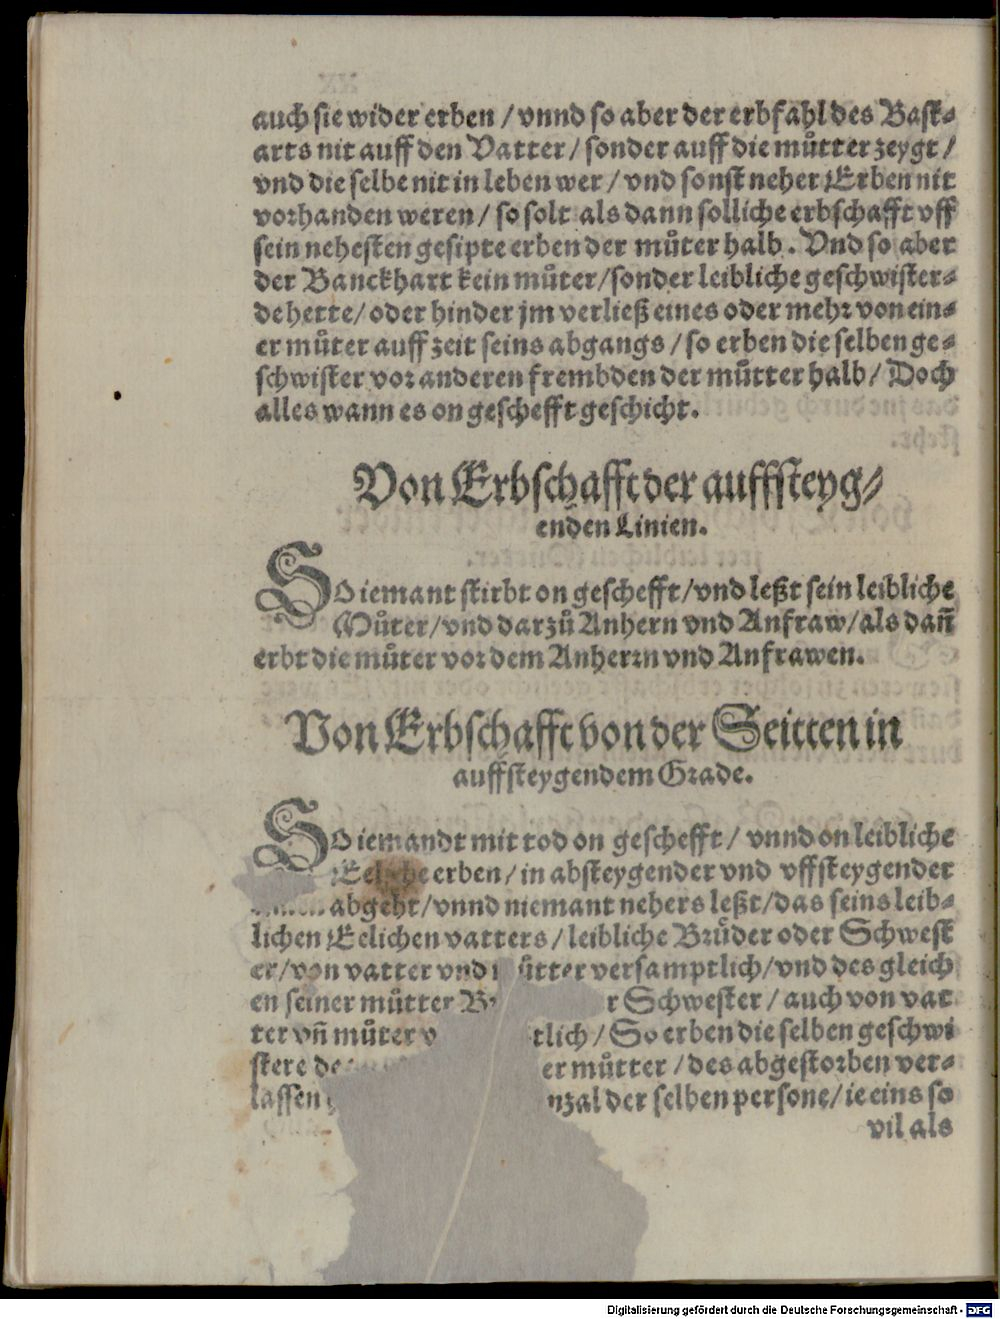 auch sie wider erben / vnnd so aber der erbfahl des Bast⸗
arts nit auff den Vatter / sonder auff die můtter zeygt /
vnd die selbe nit in leben wer / vnd sonst neher Erben nit
vorhanden weren / so solt als dann solliche erbschafft vff
sein nehesten gesipte erben der můter halb . Vnd so aber
der Banckhart kein můter / sonder leibliche geschwister⸗
de hette / oder hinder jm verließ eines oder mehr von ein⸗
er můter auff zeit seins abgangs / so erben die selben ge⸗
schwister vor anderen frembden der můtter halb / Doch
alles wann es on geschefft geschicht.
Von Erbschafft der auffsteyg⸗
enden Linien.
SO iemant stirbt on geschefft / vnd leßt sein leibliche
Můter / vnd darzů Anhern vnd Anfraw / als dañ
erbt die můter vor dem Anherrn vnd Anfrawen.
Von Erbschafft von der Seitten in
auffsteygendem Grade.
SO iemandt mit tod on geschefft / vnnd on leibliche
erben / in absteygender vnd vffsteygender
abgeht / vnnd niemant nehers leßt / das seins leib⸗
lichen Eelichen vatters / leibliche Brůder oder Schwest
er / von vatter vnd versamptlich / vnd des gleich
en seiner můtter Schwester / auch von vat
ter vñ můter / So erben die selben geschwi
stere můtter / des abgestorben ver⸗
lassen der selben persone / ie eins so
vil als
Digitalisierung gefördert durch die Deutsche Forschungsgemeinschaft - DFG